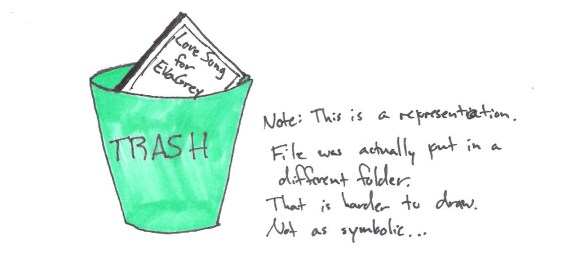 Love Song
for
EvaGrey
TRASH
Note: This is a representation.
File was actually put in a
different folder.
That is harder to draw.
Not as symbolic...